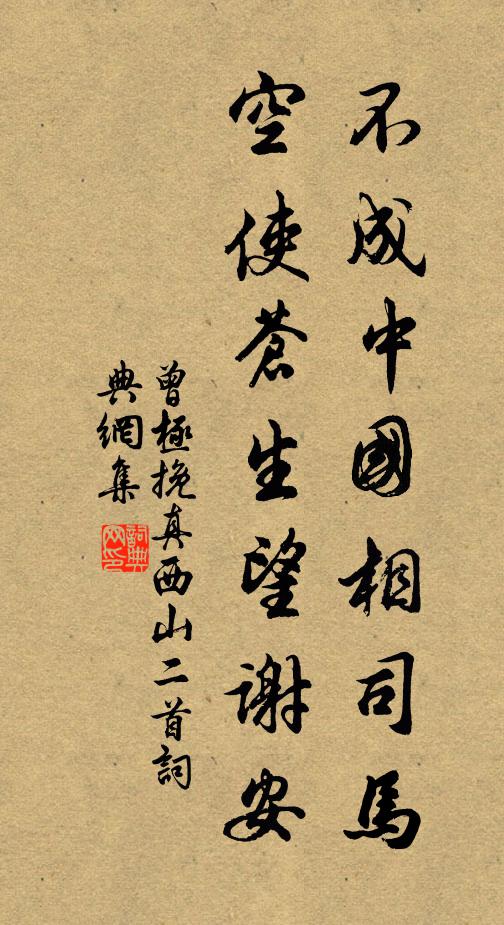 不成中國相司馬
空使蒼生望謝安
曾極挽真西山二首詞
典網集
詞典網印